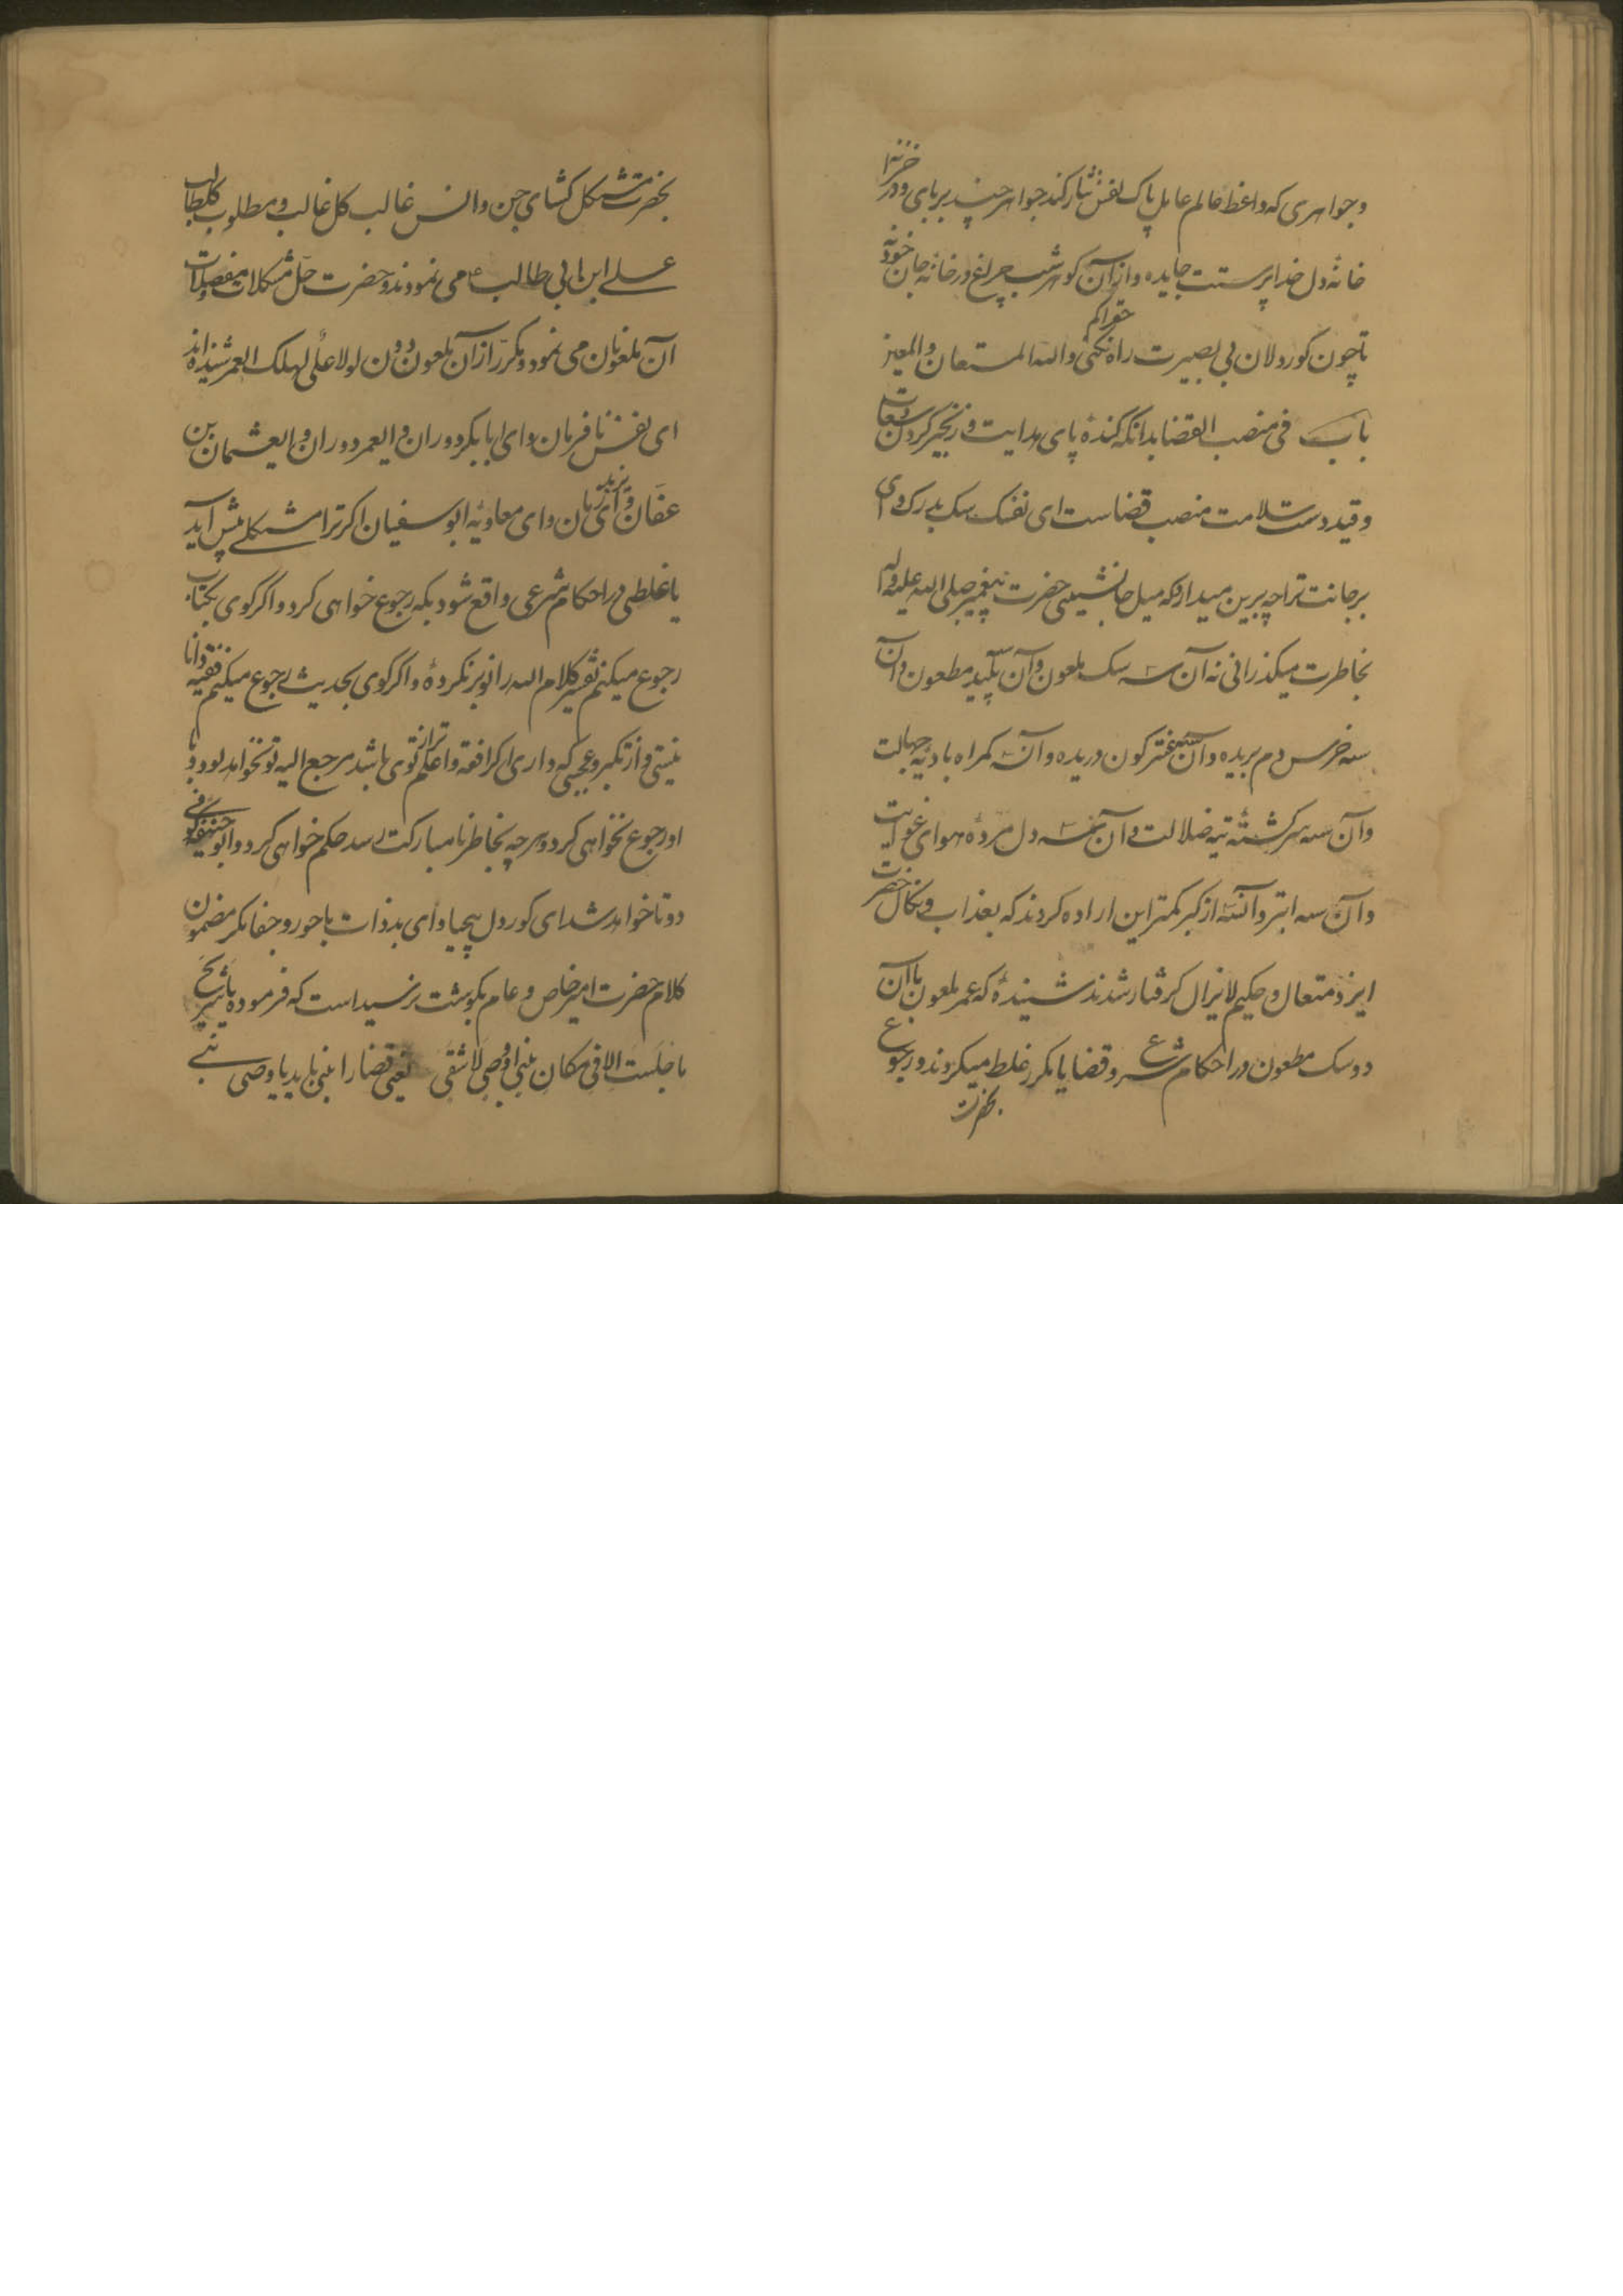 و جواهری که واعظ عالم عامل پاک نفس نثار کند جواهر چند بربای و در خزانه
خانهٔ دل خدا پرست جایده و از آن کوهر شب چراغ در خانه جان خود نه
تا چون کور دلان بی بصیرت راه کم نکنی والله المستعان والمعین
باب فی منصب القضا بدانکه کندهٔ پای هدایت و زنجیر کردن سعادت
و قید دست سلامت منصب قضاست ای نفسک سک بدرک وای
بر جانت ترا چه برین میدارد که میل جانشینی حضرت پیغمبر صلی الله علیه وآله
بخاطرت میکذرانی نه آن سه سک ملعون و آن سه پلید مطعون و آن
سه خرس دم بریده و آن سه کون دریده و آن سه کمراه بادیهٔ جهالت
و آن سه سرکشتهٔ تیه ضلالت و آن سه دل مردهٔ هوای غوایت
و آن سه ابتر و آن سه از کبر کمتر این اراده کردند که بعذاب و نکال حضرت
ایزد متعال و حکیم لایزال کرفتار شدند شنیدهٔ که عمر ملعون با آن
دو سک مطعون در احکام شرع و قضایا مکرر غلط میکردند و رجوع
بحضرت
بحضرت مشکل کشای جن و انس غالب کل غالب و مطلوب کل طالب
علی ابن ابی طالب ع می نمودند و حضرت حل مشکلات و معضلات
آن ملعونان می نمود و مکرر از آن ملعون دون لولا علی لهلک العمر شنیده اند
ای نفس نافرمان و ای ابابکر دوران و ایعمر دوران و ایعثمان بن
عفان و ای یزید زمان و ای معاویه ابو سفیان اکر ترا مشکلی پیش آید
یا غلطی در احکام شرعی واقع شود بکه رجوع خواهی کرد و اگر کوی بکتاب
رجوع میکنم تفسیر کلام الله را از بر نکردهٔ و اکر کوی بحدیث رجوع میکنم فقیه دانا
نیستی و از تکبر و عجبی که داری اکر افقه و اعلم تر از توی باشد مرجع الیه تو نخواهد بود و با
او رجوع نخواهی کرد و هر چه بخاطر نامبارکت رسد حکم خواهی کرد و ابو حنیفه کوفی
دو تا خواهد شد ای کور دل بیحیا و ای بدذات با جور و جفا مکر مضمون
کلام حضرت امیر خاص و عام بکوشت نرسیداست که فرموده یا شریح
ما جلست الا فی مکان نبی او وصی او شقی یعنی قضا را نبی باید یا وصی نبی